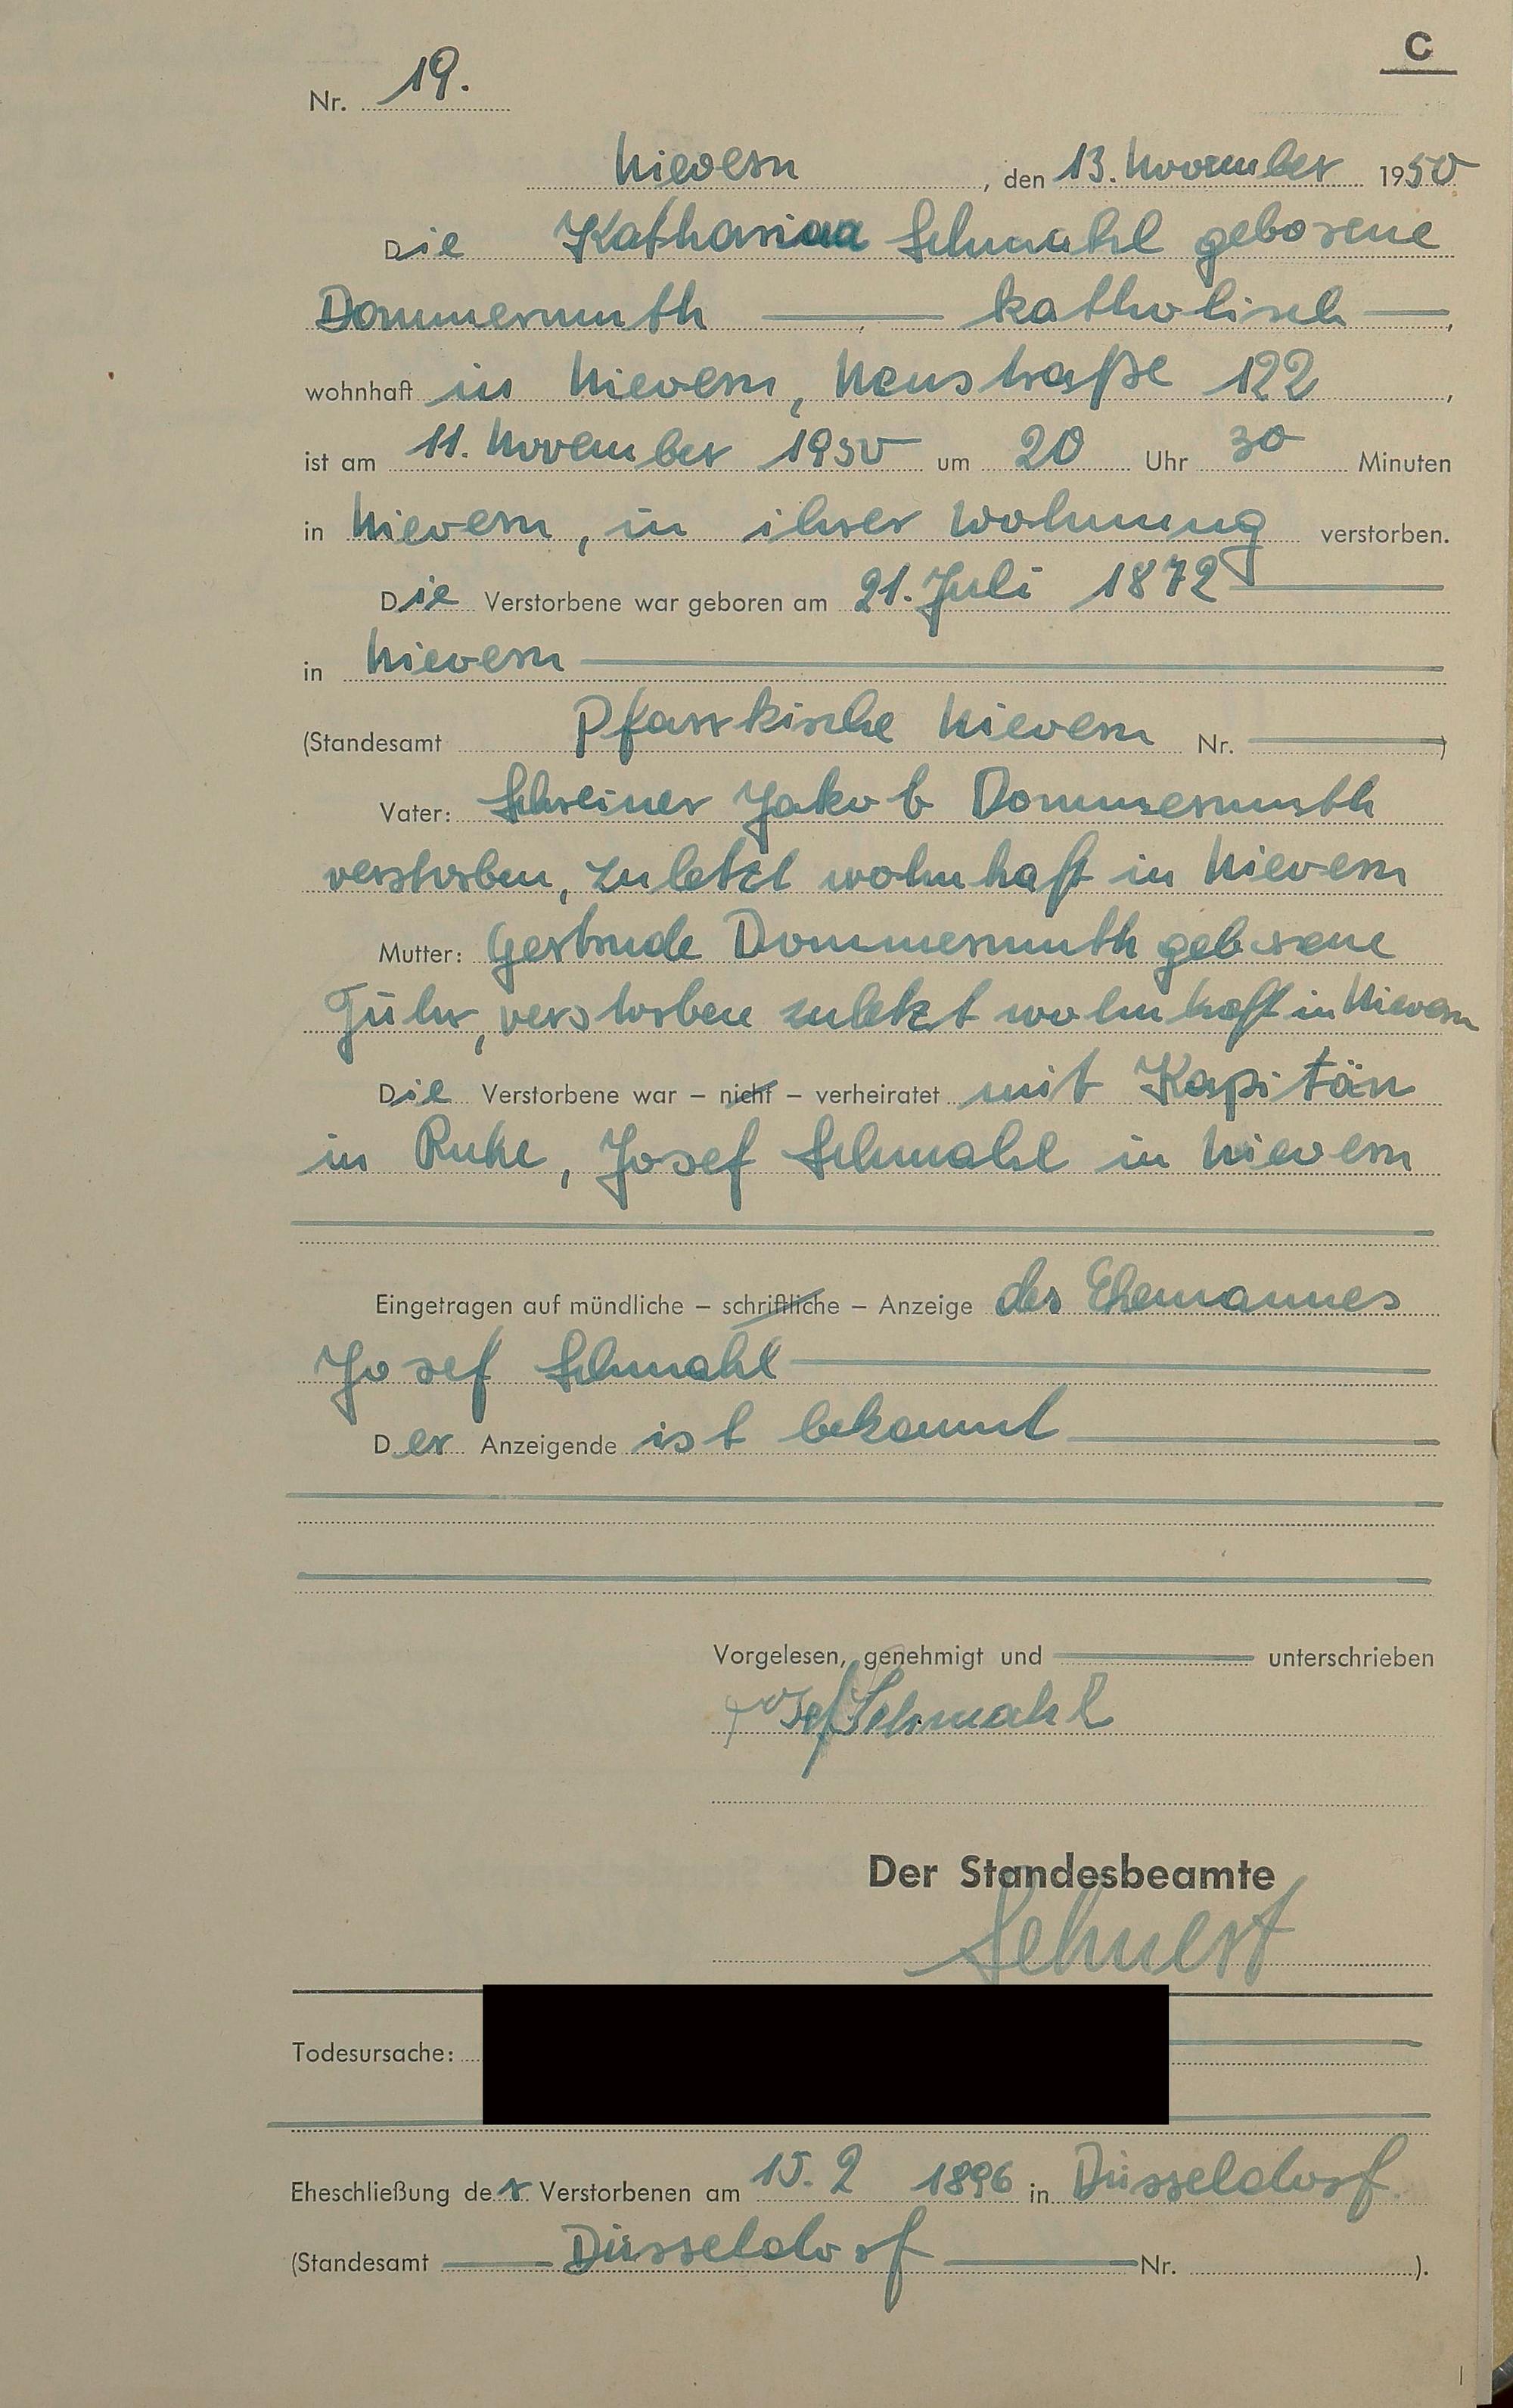 C
Nr. 19.
Nievern, den 13. November 1950
Die Katharina Schmahl geborene
Dommermuth — katholisch —,
wohnhaft in Nievern, Neustraße 122,
ist am 11. November 1950 um 20 Uhr 30 Minuten
in Nievern, in ihrer Wohnung verstorben.
Die Verstorbene war geboren am 21. Juli 1872
in Nievern
(Standesamt Pfarrkirche Nievern Nr. —)
Vater: Schreiner Jakob Dommermuth
verstorben, zuletzt wohnhaft in Nievern
Mutter: Gertrude Dommermuth geborene
Führ, verstorben zuletzt wohnhaft in Nievern
Die Verstorbene war – nicht – verheiratet mit Kapitän
in Ruhe, Josef Schmahl in Nievern
Eingetragen auf mündliche – schriftliche – Anzeige des Ehemannes
Josef Schmahl
Der Anzeigende ist bekannt
Vorgelesen, genehmigt und — unterschrieben
Josef Schmahl
Der Standesbeamte
Todesursache:
Eheschließung der Verstorbenen am 15. 2 1896 in Düsseldorf.
(Standesamt — Düsseldorf — Nr.).